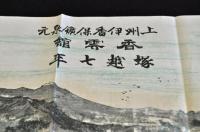 上州伊香保鑛泉元
香雲館
塚越七平